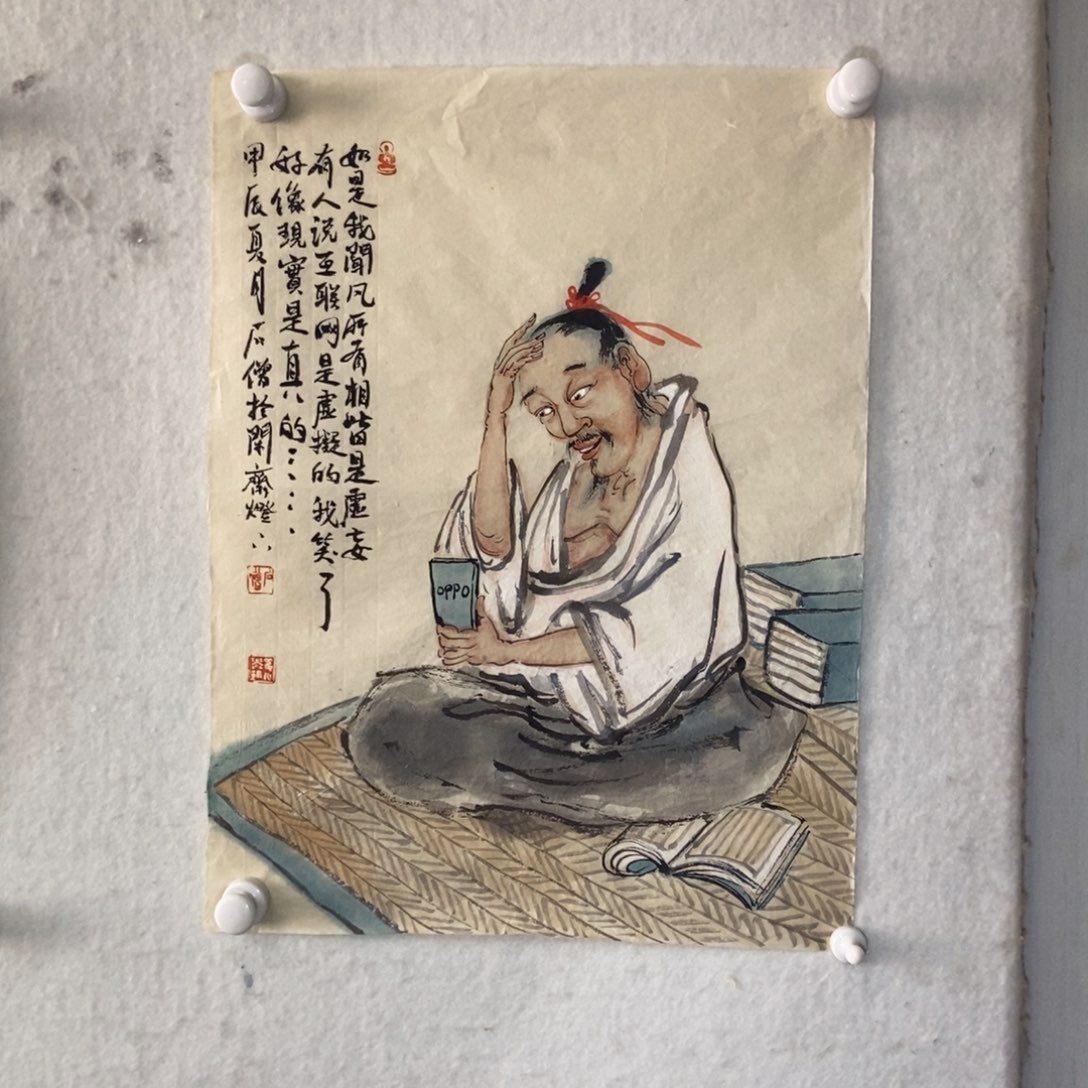 如是我聞凡所有相皆是虛妄
有人说互联网是虚擬的我笑了
好像現實是真的……
甲辰夏月石僧於閑齋燈下
OPPO